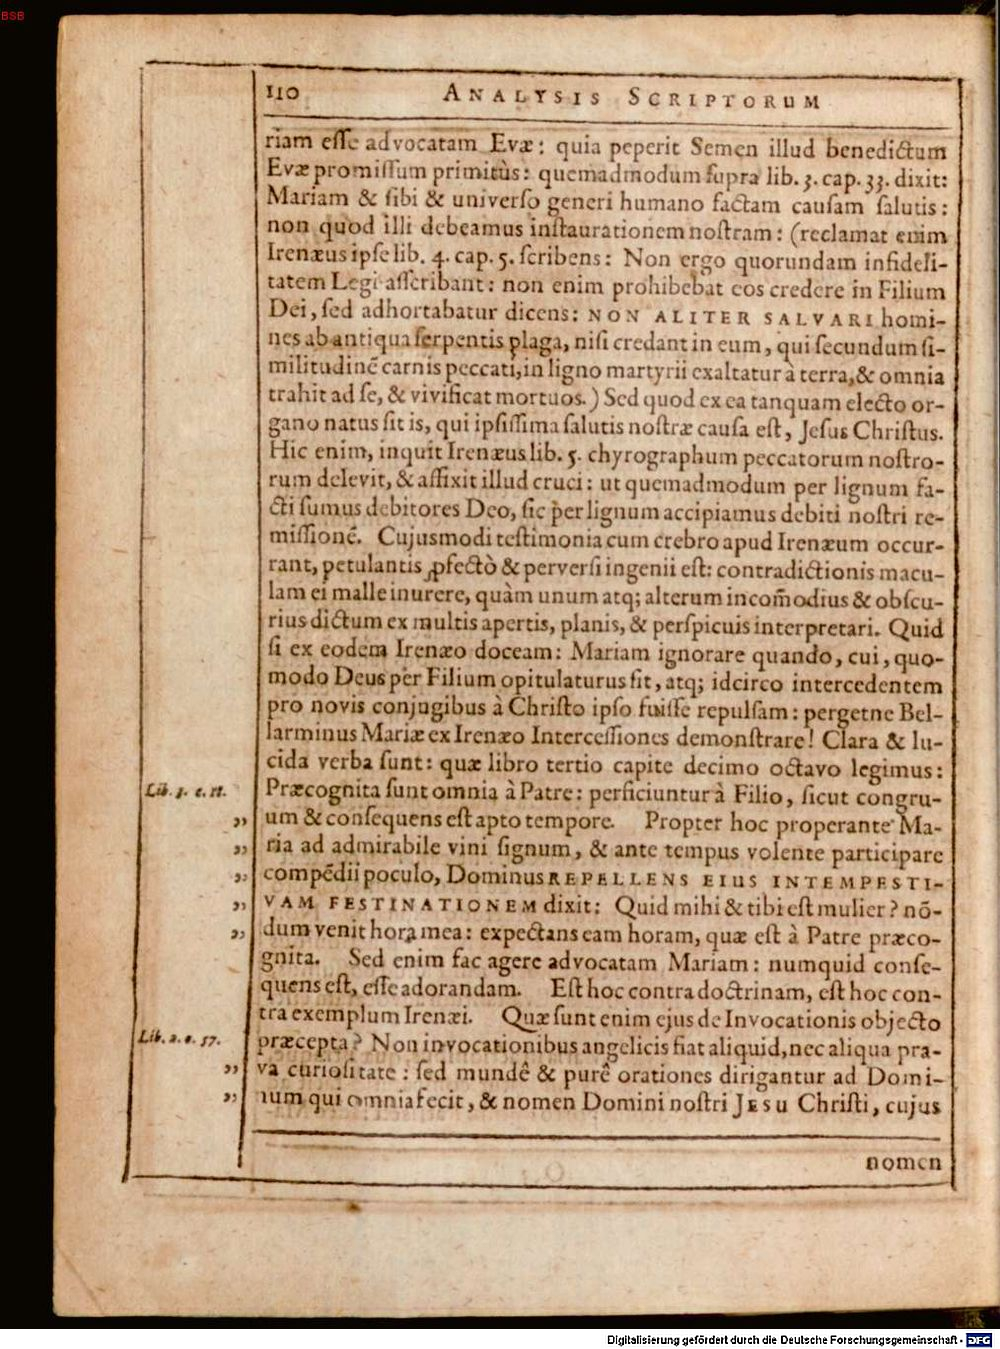 BSB
110 ANALYSIS SCRIPTORUM
riam esse advocatam Evæ: quia peperit Semen illud benedictum
Evæ promissum primitùs: quemadmodum supra lib. 3. cap. 33. dixit:
Mariam & sibi & universo generi humano factam causam salutis:
non quod illi debeamus instaurationem nostram: (reclamat enim
Irenæus ipse lib. 4. cap. 5. scribens: Non ergo quorundam infideli-
tatem Legi asscribant: non enim prohibebat eos credere in Filium
Dei, sed adhortabatur dicens: NON ALITER SALVARI homi-
nes ab antiqua serpentis plaga, nisi credant in eum, qui secundum si-
militudinē carnis peccati, in ligno martyrii exaltatur à terra, & omnia
trahit ad se, & vivificat mortuos.) Sed quod ex ea tanquam electo or-
gano natus sit is, qui ipsissima salutis nostræ causa est, Jesus Christus.
Hic enim, inquit Irenæus lib. 5. chyrographum peccatorum nostro-
rum delevit, & affixit illud cruci: ut quemadmodum per lignum fa-
cti sumus debitores Deo, sic per lignum accipiamus debiti nostri re-
missionē. Cujusmodi testimonia cum crebro apud Irenæum occur-
rant, petulantis ꝓfectò & perversi ingenii est: contradictionis macu-
lam ei malle inurere, quàm unum atq; alterum incom̄odius & obscu-
rius dictum ex multis apertis, planis, & perspicuis interpretari. Quid
si ex eodem Irenæo doceam: Mariam ignorare quando, cui, quo-
modo Deus per Filium opitulaturus sit, atq; idcirco intercedentem
pro novis conjugibus à Christo ipso fuisse repulsam: pergetne Bel-
larminus Mariæ ex Irenæo Intercessiones demonstrare! Clara & lu-
cida verba sunt: quæ libro tertio capite decimo octavo legimus:
Lib. 3. c. 18. Præcognita sunt omnia à Patre: perficiuntur à Filio, sicut congru-
,, um & consequens est apto tempore. Propter hoc properante Ma-
,, ria ad admirabile vini signum, & ante tempus volente participare
,, compēdii poculo, Dominus REPELLENS EIUS INTEMPESTI-
,, VAM FESTINATIONEM dixit: Quid mihi & tibi est mulier? nō-
,, dum venit hora mea: expectans eam horam, quæ est à Patre præco-
gnita. Sed enim fac agere advocatam Mariam: numquid conse-
quens est, esse adorandam. Est hoc contra doctrinam, est hoc con-
tra exemplum Irenæi. Quæ sunt enim ejus de Invocationis objecto
Lib. 2. c. 57. præcepta? Non invocationibus angelicis fiat aliquid, nec aliqua pra-
,, va curiositate: sed mundê & purê orationes dirigantur ad Domi-
,, num qui omnia fecit, & nomen Domini nostri JESU Christi, cujus
nomen
Digitalisierung gefördert durch die Deutsche Forschungsgemeinschaft - DFG